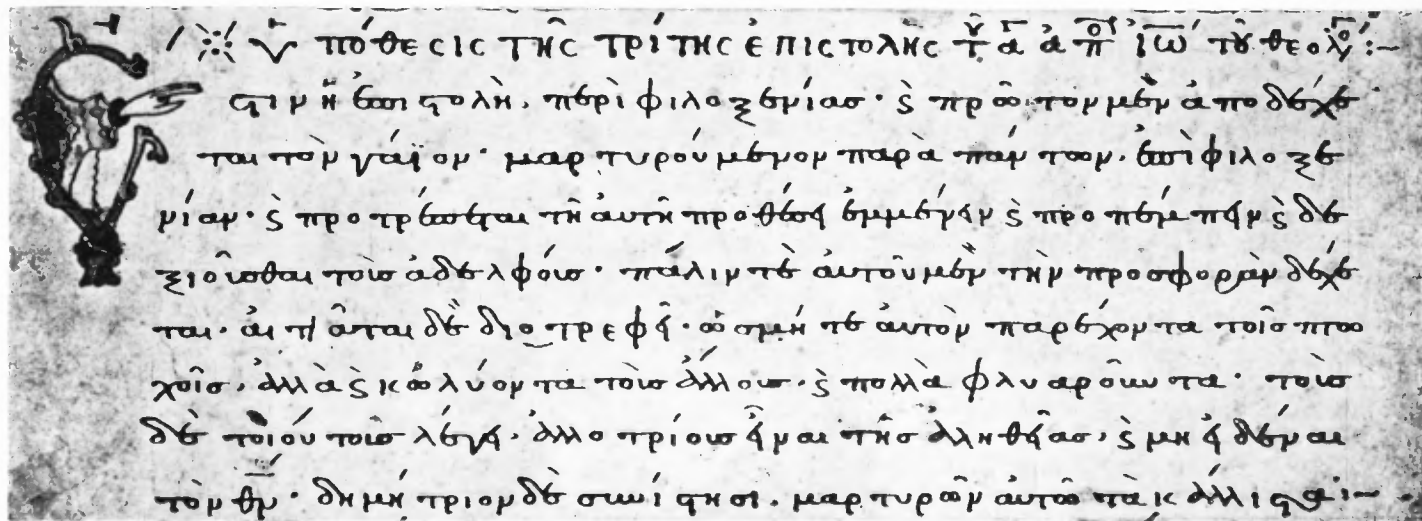 ὑπόθεσις τῆς τρίτης ἐπιστολῆς τοῦ ἁγ ἀπο ἰω τοῦ θεολόγ :~
Ἔστιν ἡ ἐπιστολὴ, περὶ φιλοξενίας· ϗ πρῶτον μὲν ἀποδέχε
ται τὸν γάϊον· μαρτυρούμενον παρὰ πάντων· ἐπὶ φιλοξε
νίαν· ϗ προτρέπεται τῆ αὐτῆ προθέσει ἐμμένειν ϗ προπέμπειν ϗ δε
ξιοῦσθαι τοὺς ἀδελφούς· πάλιν τὲ αὐτοῦ μὲν τὴν προσφορὰν δέχε
ται· αἰτιᾶται δὲ διοτρεφῆ· ὡς μή τε αὐτὸν παρέχοντα τοῖς πτω
χοῖς, ἀλλὰ ϗ κωλύοντα τοὺς ἄλλους· ϗ πολλὰ φλυαροῦντα· τοὺς
δὲ τοιούτους λέγει, ἀλλοτρίους εἶναι τῆς ἀληθείας, ϗ μὴ εἰδέναι
τὸν θν· δημήτριον δὲ συνίστησι, μαρτυρῶν αὐτῶ τὰ κάλλιστα:~